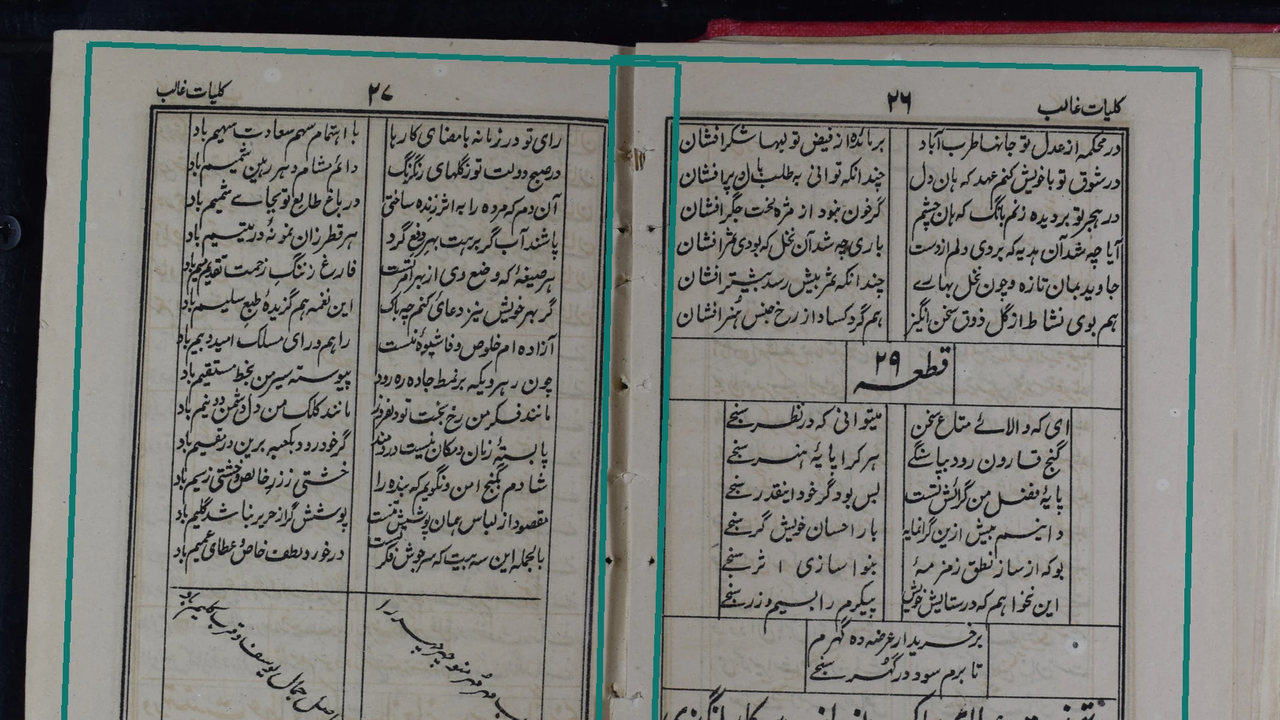 کلیات غالب
۲۶
در محکمہ از عدل تو جانہا طرب آباد
بر مائدہ از فیض تو لبہا شکر افشان
در شوق تو با خویش کنم عہد کہ ہان دل
چندانکہ توانی بہ طلب بال و پر افشان
در ہجر تو بر دیدہ زنم بانگ کہ ہان چشم
گر خون نبود از مژہ لخت جگر افشان
آیا چہ شد آن ہدیہ کہ بردی دلم از دست
باری چہ شد آن نخل کہ بودی ثمر افشان
جاوید بمان تازہ و چون نخل بہارے
چندانکہ ثمر بیش رسد بیشتر افشان
ہم بوی نشاط از گل ذوق سخن انگیز
ہم گرد کساد از رخ جنس ہنر افشان
قطعہ ۲۹
ای کہ در الائے متاع سخن
میتوانی کہ در نظر سنجے
گنج قارون رود بپا سنگے
ہر کرا پایۂ ہنر سنجے
پایۂ فضل من گرانش تست
بس بود گر خود اینقدر سنجے
دانیم بیش ازین گرانمایہ
بار احسان خویش گر سنجے
بو کہ از ساز نطق زمزمۂ
بنوا سازی اثر سنجے
این نخواہم کہ در ستایش خویش
پیکرم را بسیم و زر سنجے
بر خریدار عرضہ دہ گہرم
تا برم سود در گہر سنجے
کلیات غالب
۲۷
رای تو در زمانہ بامضای کارہا
با اہتمام سہم سعادت سہیم باد
در صبح دولت تو ز گلہای رنگرنگ
دائم مشام دہر رہین شمیم باد
آن دم کہ مردہ را بہ اثر زندہ ساختی
در باغ طالع تو بجاے شمیم باد
پاشند آب گر برہت بہر دفع گرد
ہر قطر زان نمونۂ در یتیم باد
ہر صیغۂ کہ وضع وی از بہر آفتست
فارغ ز ننگ زحمت تقدیم سیم باد
گر بہر خویش نیز دعای کنم چہ باک
این نغمہ ہم گزیدۂ طبع سلیم باد
آزادہ ام خلوص و فا شیوۂ منست
راہم ورای مسلک امید و بیم باد
چون رہرویکہ بر نمط جادہ رہ رود
پیوستہ سیر من بخط مستقیم باد
مانند فکر من رخ بخت تو دلفروز
مانند کلک من دل دشمن دو نیم باد
پابستۂ زمان و مکان نیست دردمند
گر خود رود بکعبہ برین در مقیم باد
شادم بگنج امن و نگویم کہ بندہ را
خشتی ز زر خالص و خشتی ز سیم باد
مقصود از لباس ہمان پوشش تنست
پوشش گر از حریر نباشد گلیم باد
بالجملہ این سہ بیت کہ سر جوش فکر تست
در خورد لطف خاص و عطای عمیم باد